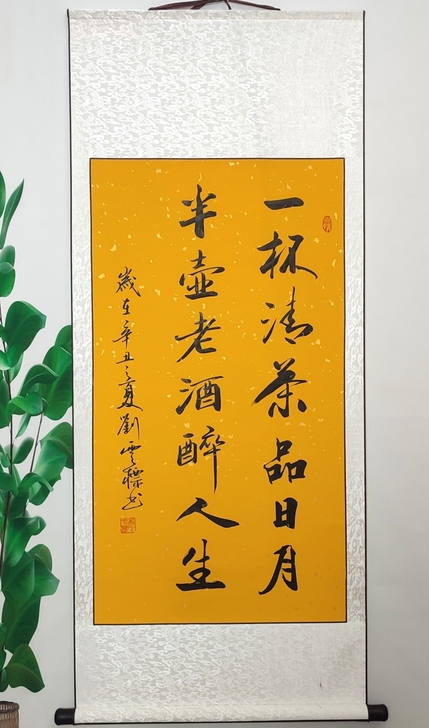 一杯清茶品日月
半壶老酒醉人生
歲在辛丑之夏劉雲 书